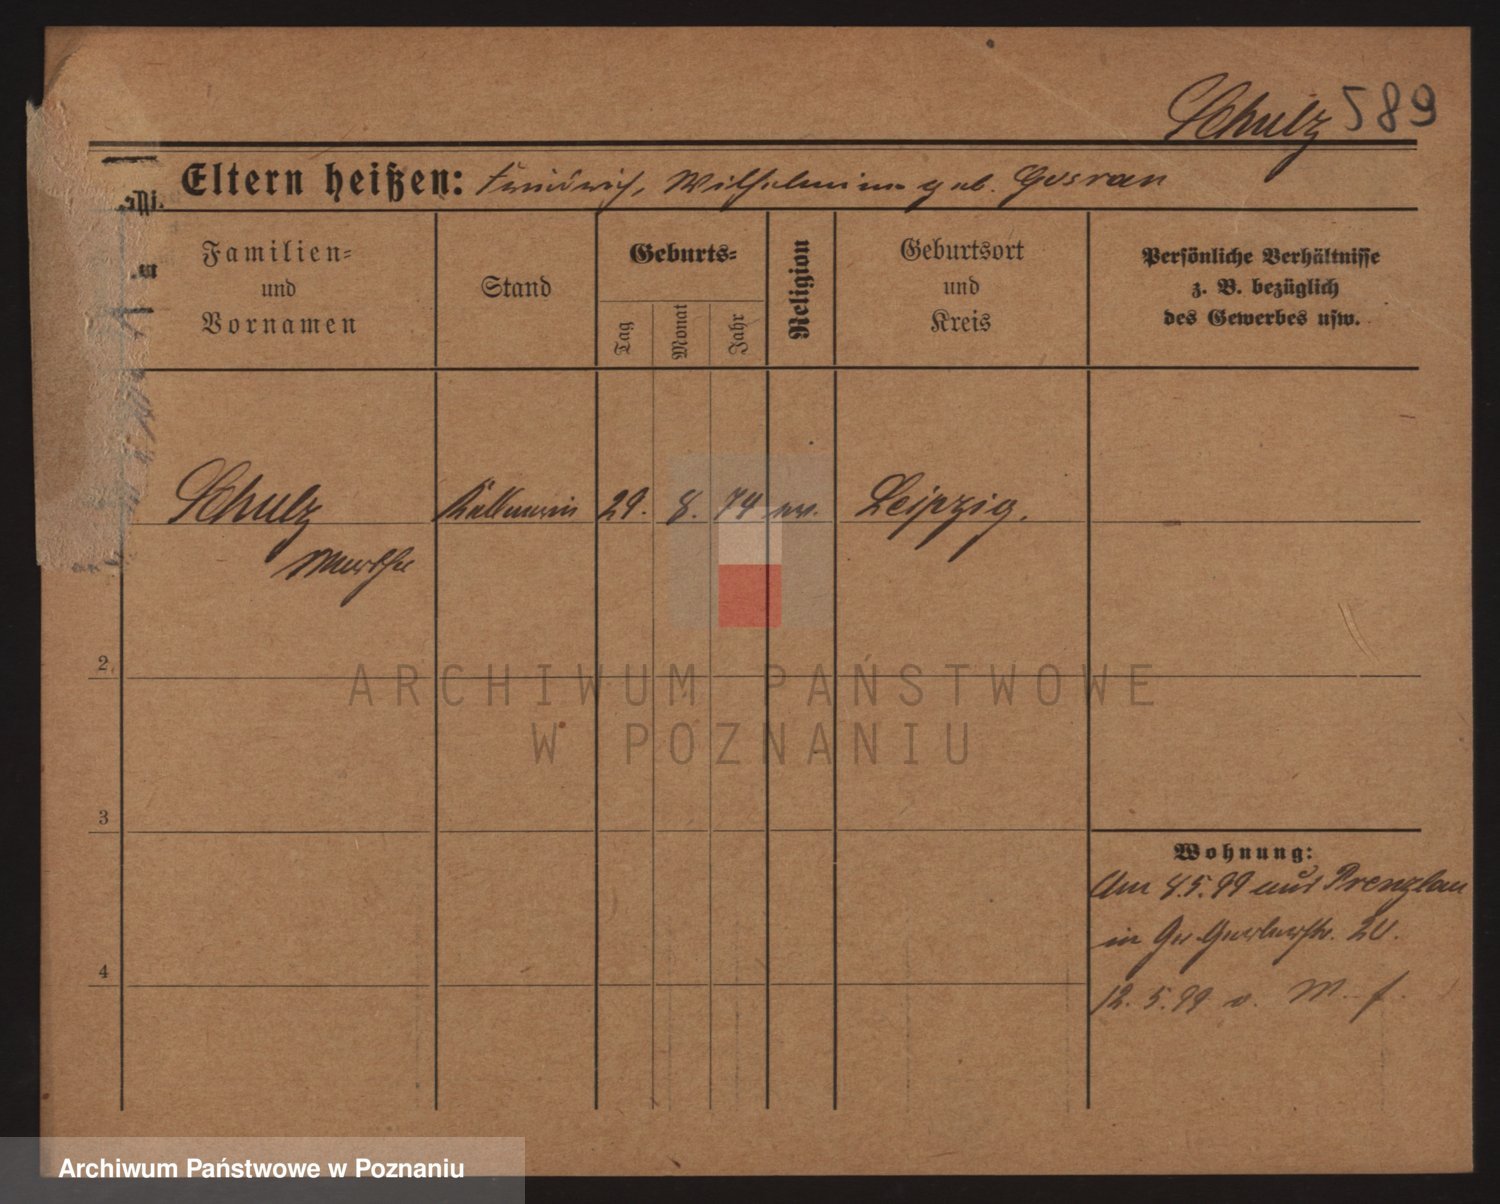 Schulz 589
Eltern heißen: Friedrich, Wilhelmine geb.
Familien=
und
Vornamen
Stand
Geburts=
Tag
Monat
Jahr
Religion
Geburtsort
und
Kreis
Persönliche Verhältnisse
z. B. bezüglich
des Gewerbes usw.
Schulz
Marthe
Kellnerin 29. 8. 74 ev. Leipzig.
2
3
4
Wohnung:
Am 8.5.99 aus Prenzlau
in
12.5.99 v.
ARCHIWUM PAŃSTWOWE
W POZNANIU
Archiwum Państwowe w Poznaniu